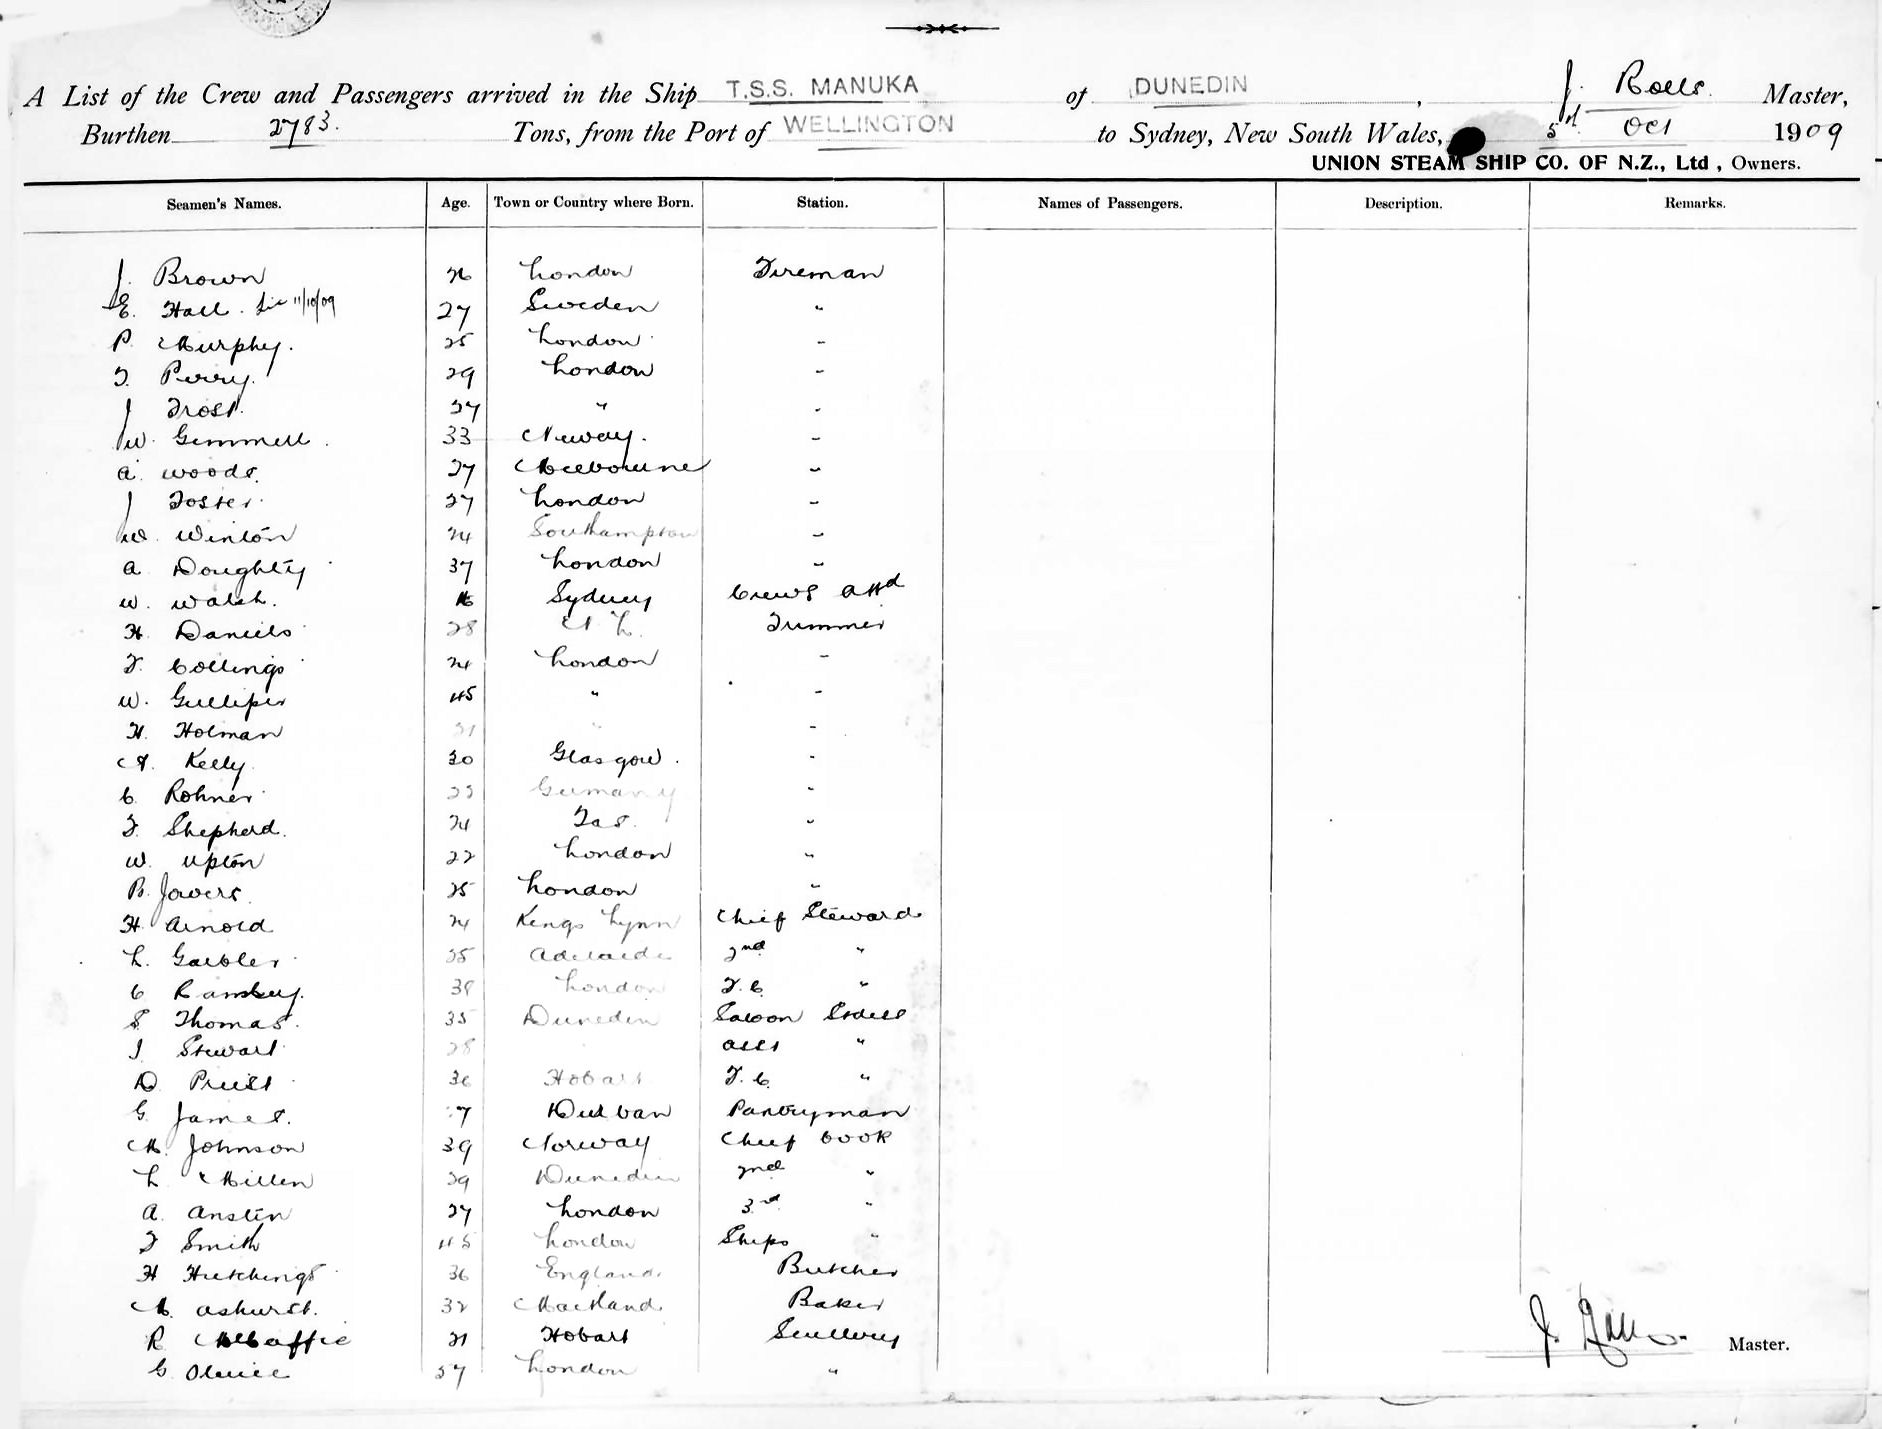 A List of the Crew and Passengers arrived in the Ship T.S.S. MANUKA of DUNEDIN, J. Rolls Master,
Burthen 2783. Tons, from the Port of WELLINGTON to Sydney, New South Wales, 5 Oct 1909
UNION STEAM SHIP CO. OF N.Z., Ltd, Owners.
Seamen's Names. Age. Town or Country where Born. Station. Names of Passengers. Description. Remarks.
J. Brown 26 London Fireman
E. Hall. 11/10/09 27 Sweden "
P. Murphy. 25 London "
T. Perry. 29 London "
J Frost. 27 " "
W. Gemmell. 33 "
A. Woods. 27 Melbourne "
J Foster. 27 London "
W. Winton 24 Southampton "
A Doughty 37 London "
W. Walsh. 16 Sydney Crews Attd
H. Daniels 28 N Z. Trimmer
F. Collings 24 London "
W. Gulliper 45 " "
H. Holman " "
N. Kelly. 30 Glasgow. "
C. Rohner Germany "
F. Shepherd. 24 Tas. "
W. Upton 22 London "
B. Jowers. 25 London "
H. Arnold 24 Kings Lynn Chief Steward
L. Gaibler Adelaide 2nd "
C Ramsbey. 38 London F.C. "
S. Thomas. 35 Dunedin Saloon
J. Stewart 28 Asst "
D. Priest 36 Hobart F.C. "
G. James. Durban Pantryman
M. Johnson 39 Norway Chief Cook
L. Millen 29 Dunedin 2nd "
A. Austin 27 London 3rd "
F Smith 45 London Ships "
H Hutchings 36 England. Butcher
M. Ashurst. 32 Maitland. Baker
R McHaffie 21 Hobart Scullery
G. 57 London "
J. Rolls. Master.